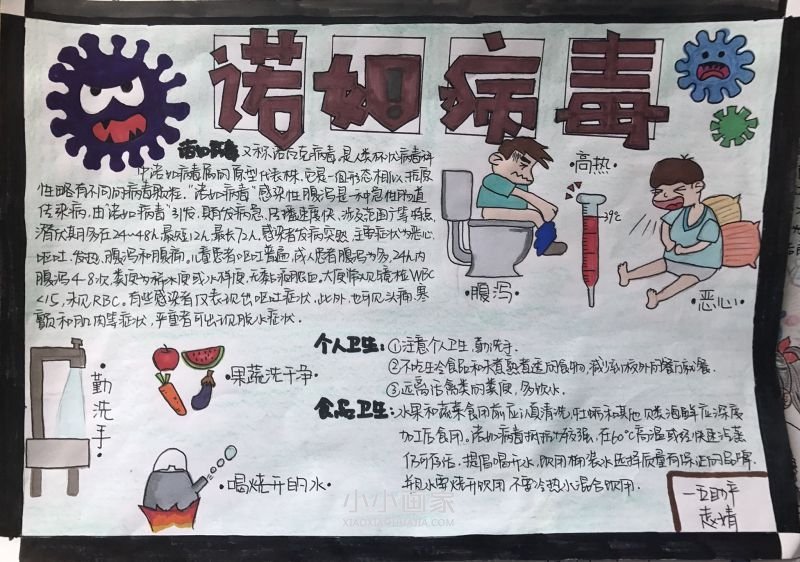 诺如病毒
诺如病毒又称诺瓦克病毒,是人类杯状病毒科
中诺如病毒属的原型代表株。它是一组形态相似、抗原
性略有不同的病毒颗粒。"诺如病毒"感染性腹泻是一种急性肠道
传染病,由诺如病毒引发,具有发病急、传播速度快、涉及范围广等特点
潜伏期多在24~48h,最短12h,最长72h。感染者发病突然,主要症状为恶心、
呕吐、发热、腹泻和腹痛。儿童患者呕吐普遍,成人患者腹泻为多,24h内
腹泻4-8次,粪便为稀水便或水样便,无黏液脓血。大便常规镜检WBC
<15,未见RBC。有些感染者仅表现出呕吐症状,此外,也可见头痛、寒
颤和肌肉痛等症状,严重者可出现脱水症状。
·高热·
39℃
·腹泻·
·恶心·
·勤洗手·
·果蔬洗干净·
·喝烧开的水·
个人卫生:①注意个人卫生,勤洗手.
②不吃生冷食品和未煮熟煮透的食物,减少
③远离
类的粪便,多饮水.
食品卫生:水果和蔬菜食用前应认真清洗,牡蛎和其他贝类海鲜应深度
加工后食用。诺如病毒抵抗力较强,在60℃高温或经快速汽蒸
仍可存活。提倡喝开水,饮用桶装水应选择质量有保证的品牌,
并且水要烧开饮用 不要冷热水混合饮用.
小小画家
XIAOXIAOHUAJIA.COM